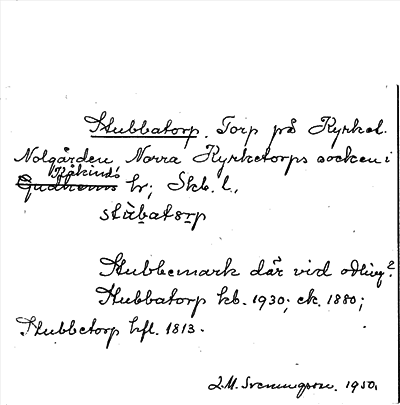 Stubbatorp. Torp på Kyrket.
Nolgården Norra Kyrketorps socken i
Kåkinds
Gudhems hr; Skb. l.
stùbatɔrp
Stubbemark där vid odling?
Stubbatorp kb. 1930; ek. 1880;
Stubbetorp hfl. 1813.
L.M. Svenungsson. 1950.